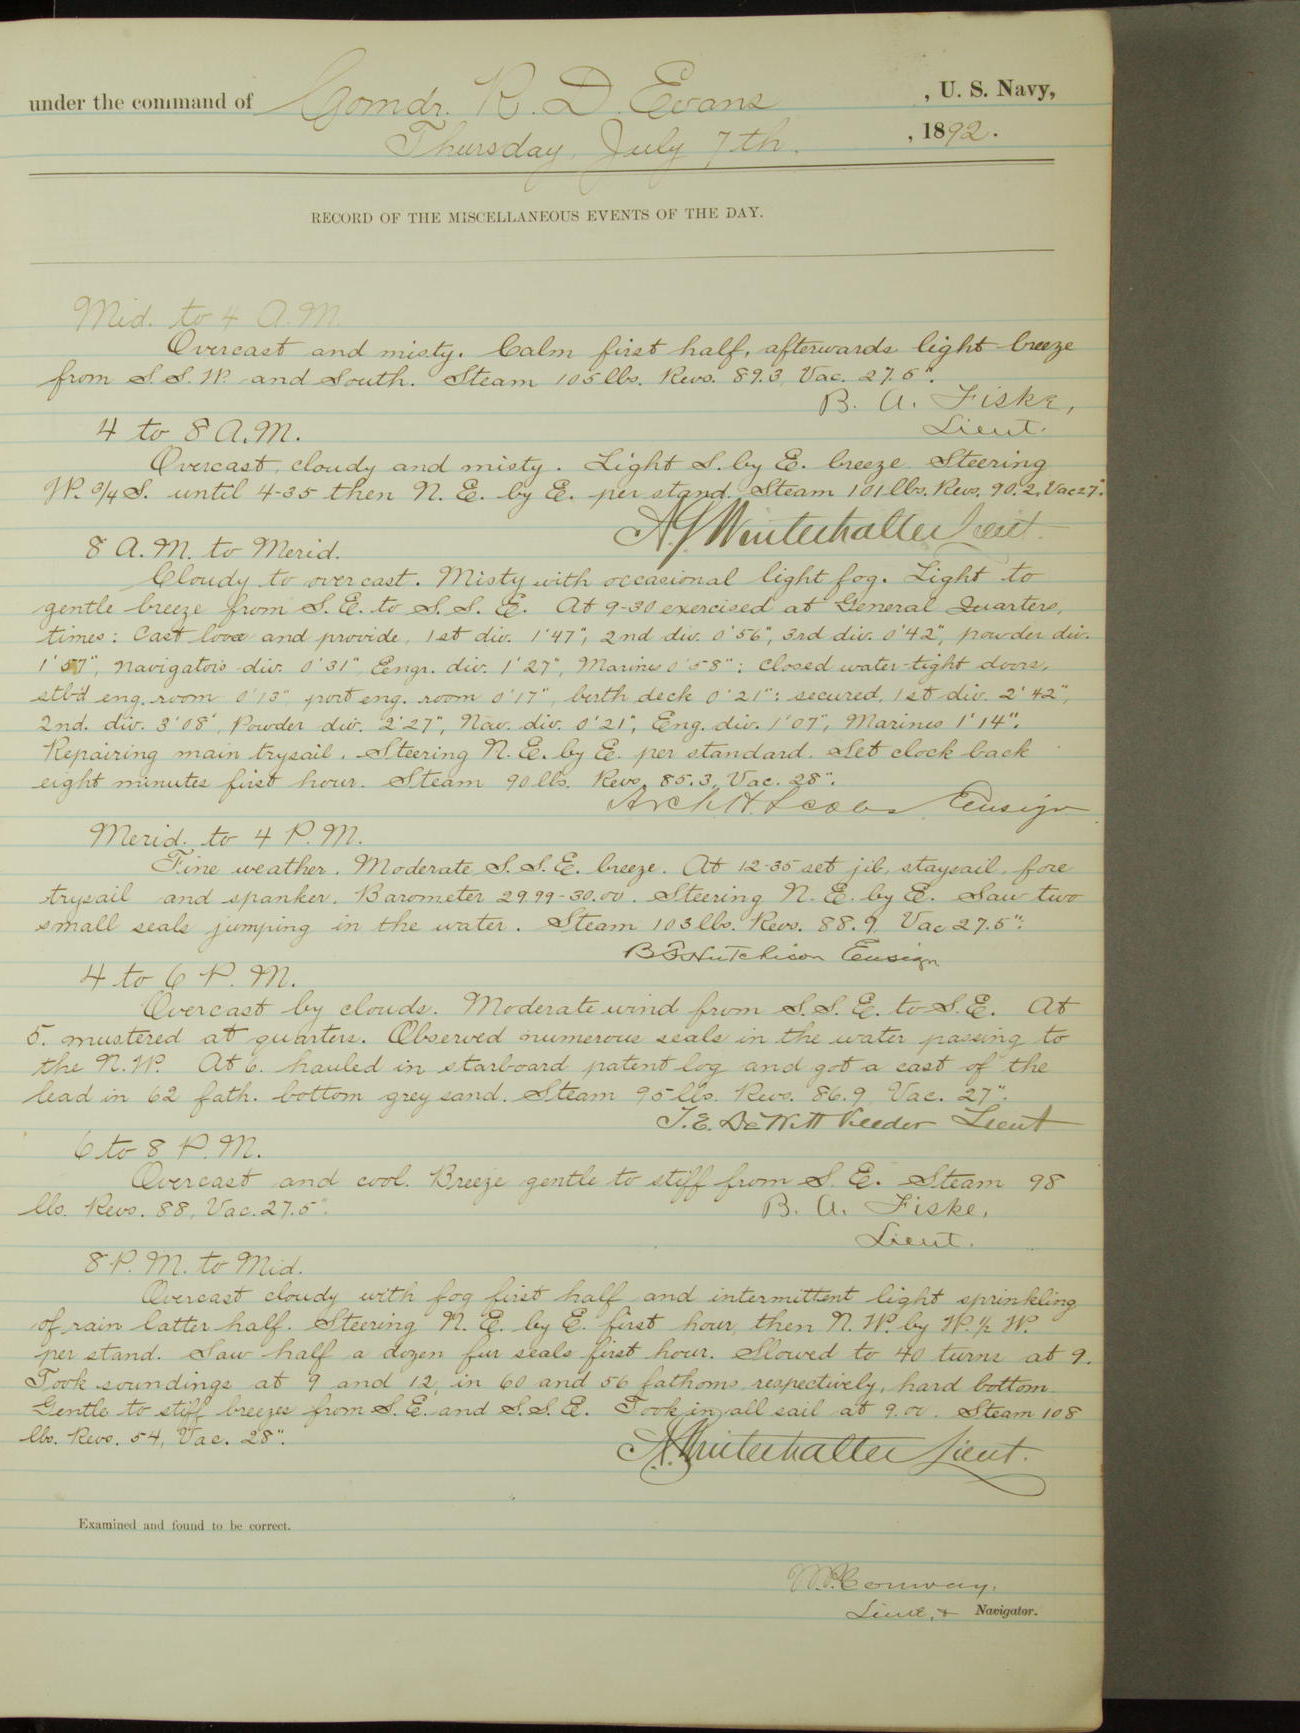 under the command of Comdr. R. D. Evans , U. S. Navy,
Thursday, July 7th. , 1892.
RECORD OF THE MISCELLANEOUS EVENTS OF THE DAY.
Mid. to 4 A.M.
Overcast and misty. Calm first half, afterwards light breeze
from S.S.W. and South. Steam 105 lbs. Revs. 89.3, Vac. 27.5".
B. A. Fiske,
Lieut.
4 to 8 A.M.
Overcast, cloudy and misty. Light S. by E. breeze. Steering
W. 3/4 S. until 4-35 then N. E. by E. per stand. Steam 101 lbs. Revs. 90.2, Vac 27".
A G Winterhalter Lieut.
8 A.M. to Merid.
Cloudy to overcast. Misty with occasional light fog. Light to
gentle breeze from S.E. to S.S.E. At 9-30 exercised at General Quarters,
times: Cast loose and provide, 1st div. 1'47", 2nd div. 0'56", 3rd div. 0'42", powder div.
1'57", Navigator's div. 0'31", Engr. div. 1'27", Marines 0'58": closed water-tight doors,
stb'd eng. room 0'13" port eng. room 0'17", berth deck 0'21": secured, 1st div. 2'42",
2nd. div. 3'08", Powder div. 2'27", Nav. div. 0'21", Eng. div. 1'07", Marines 1'14".
Repairing main trysail. Steering N.E. by E. per standard. Set clock back
eight minutes first hour. Steam 90 lbs. Revs. 85.3, Vac. 28".
Arch H. Scales Ensign
Merid. to 4 P.M.
Fine weather. Moderate S.S.E. breeze. At 12-35 set jib, staysail, fore
trysail and spanker. Barometer 29.99-30.00. Steering N.E. by E. Saw two
small seals jumping in the water. Steam 103 lbs. Revs. 88.9, Vac 27.5".
B F Hutchison Ensign
4 to 6 P.M.
Overcast by clouds. Moderate wind from S.S.E. to S.E. At
5. mustered at quarters. Observed numerous seals in the water passing to
the N.W. At 6. hauled in starboard patent log and got a cast of the
lead in 62 fath. bottom grey sand. Steam 95 lbs. Revs. 86.9, Vac. 27".
T. E. DeWitt Veeder Lieut
6 to 8 P.M.
Overcast and cool. Breeze gentle to stiff from S.E. Steam 98
lbs. Revs. 88, Vac. 27.5".
B. A. Fiske,
Lieut.
8 P.M. to Mid.
Overcast cloudy with fog first half and intermittent light sprinkling
of rain latter half. Steering N.E. by E. first hour, then N.W. by W. 1/2 W.
per stand. Saw half a dozen fur seals first hour. Slowed to 40 turns at 9.
Took soundings at 9 and 12, in 60 and 56 fathoms, respectively, hard bottom.
Gentle to stiff breezes from S.E. and S.S.E. Took in all sail at 9.00. Steam 108
lbs. Revs. 54, Vac. 28".
A G Winterhalter Lieut.
Examined and found to be correct.
W.P. Conway,
Lieut, & Navigator.